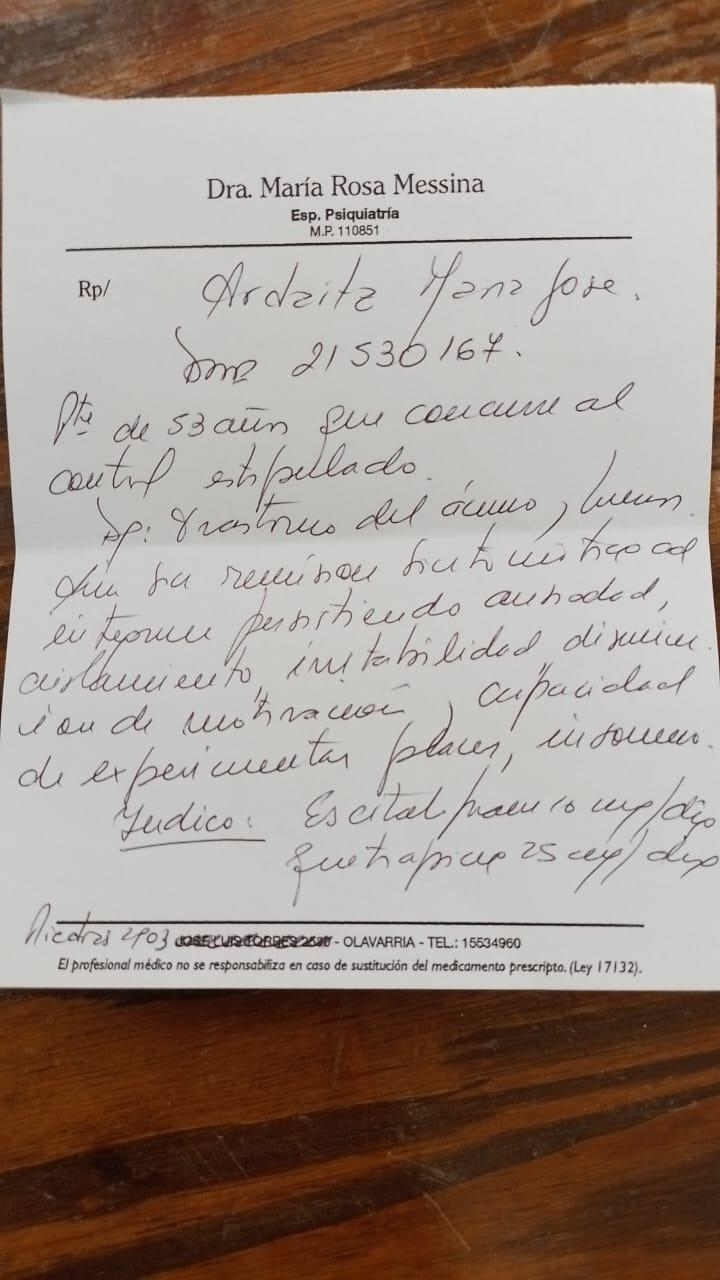 Dra. María Rosa Messina
Esp. Psiquiatría
M.P. 110851
Rp/ Ardaitz Maria Jose.
21530167.
Pte de 53 años que concurre al
control estipulado.
Dg: Trastorno del ánimo,
remision sintomática ad
integrum persistiendo ansiedad,
aislamiento, irritabilidad, disminu
cion de motivación, capacidad
de experimentar placer, insomnio.
Indico: Escitalopram 10 mg/dia
Quetiapina 25 mg/dia
Piedras 2903 JOSE LUIS TORRES - OLAVARRIA - TEL.: 15534960
El profesional médico no se responsabiliza en caso de sustitución del medicamento prescripto. (Ley 17132).